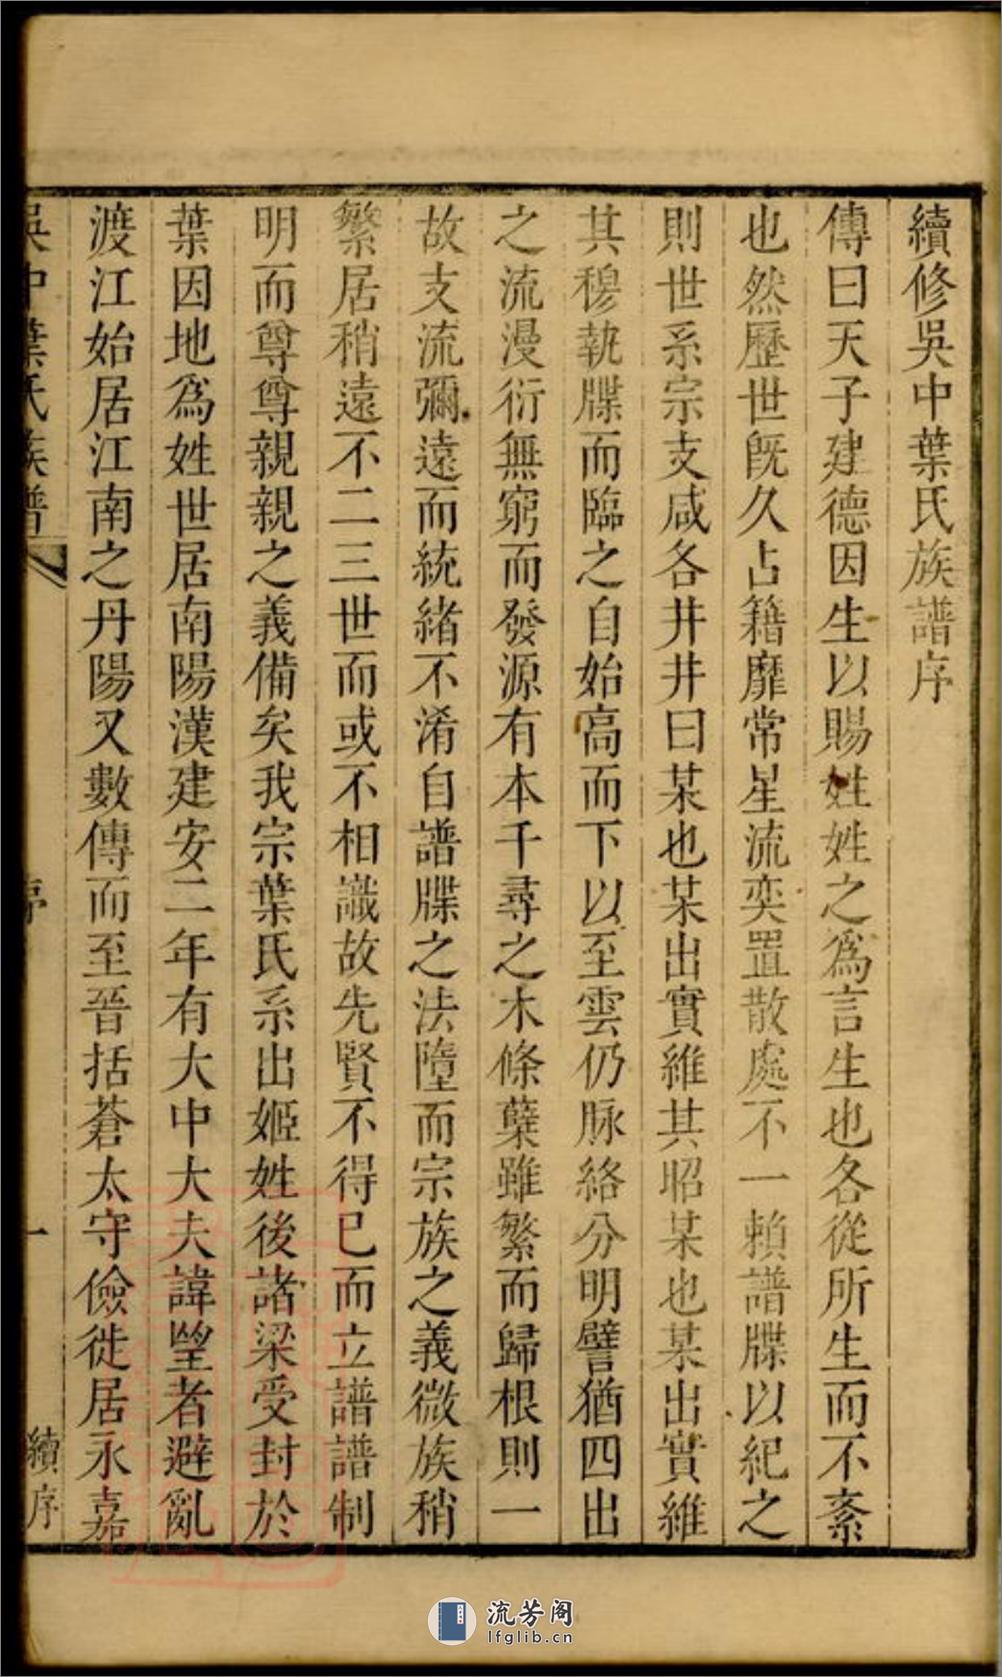 續修吳中葉氏族譜序
傳曰天子建德因生以賜姓姓之爲言生也各從所生而不紊
也然歷世旣久占籍靡常星流奕置散處不一賴譜牒以紀之
則世系宗支咸各井井曰某也某出實維其昭某也某出實維
其穆執牒而臨之自始高而下以至雲仍脉絡分明譬猶四出
之流漫衍無窮而發源有本千尋之木條蘖雖繁而歸根則一
故支流彌遠而統緒不淆自譜牒之法墮而宗族之義微族稍
繁居稍遠不二三世而或不相識故先賢不得已而立譜譜制
明而尊尊親親之義備矣我宗葉氏系出姬姓後諸梁受封於
葉因地爲姓世居南陽漢建安二年有大中大夫諱朢者避亂
渡江始居江南之丹陽又數傳而至晉括蒼太守儉徙居永嘉
吳中葉氏族譜
序
一
續序
流芳阁
lfglib.cn